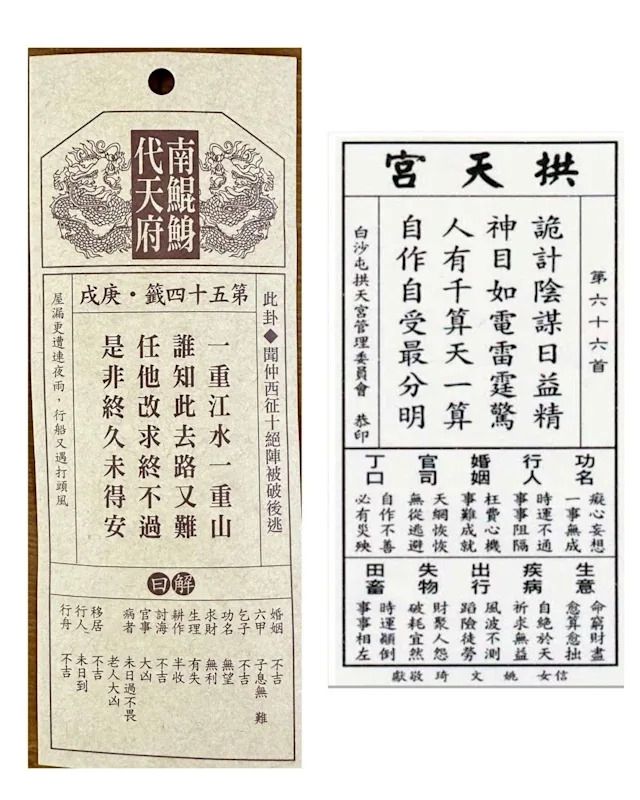 南鯤鯓
代天府
第五十四籤・庚戌
此卦◆聞仲西征十絕陣被破後逃
一重江水一重山
誰知此去路又難
任他改求終不過
是非終久未得安
屋漏更遭連夜雨，行船又遇打頭風
解曰
婚姻 不吉
六甲 子息無 難
乞子 不吉
功名 無望
求財 無利
生理 有失
耕作 半收
討海 不吉
官事 大凶
病者 未日過不畏
老人大凶
移居 不吉
行人 未日到
行舟 不吉
拱天宮
第六十六首
詭計陰謀日益精
神目如電雷霆驚
人有千算天一算
自作自受最分明
白沙屯拱天宮管理委員會 恭印
功名
癡心妄想
一事無成
行人
時運不通
事事阻隔
婚姻
枉費心機
事難成就
官司
天網恢恢
無從逃避
丁口
自作不善
必有災殃
生意
命窮財盡
愈算愈拙
疾病
自絕於天
祈求無益
出行
風波不測
蹈險徒勞
失物
財聚人怨
破耗宜然
田畜
時運顛倒
事事相左
信女 姚文琦敬獻